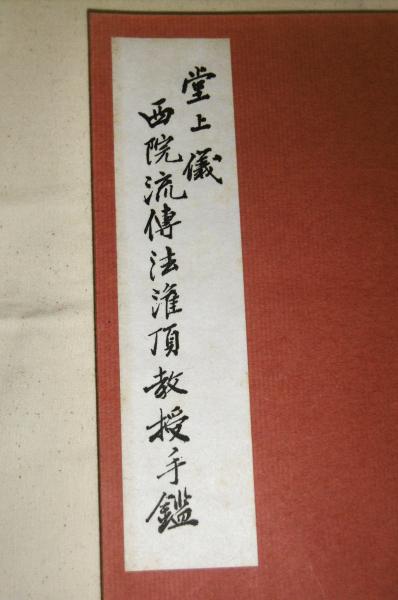 堂上儀
西院流傳法潅頂教授手鑑